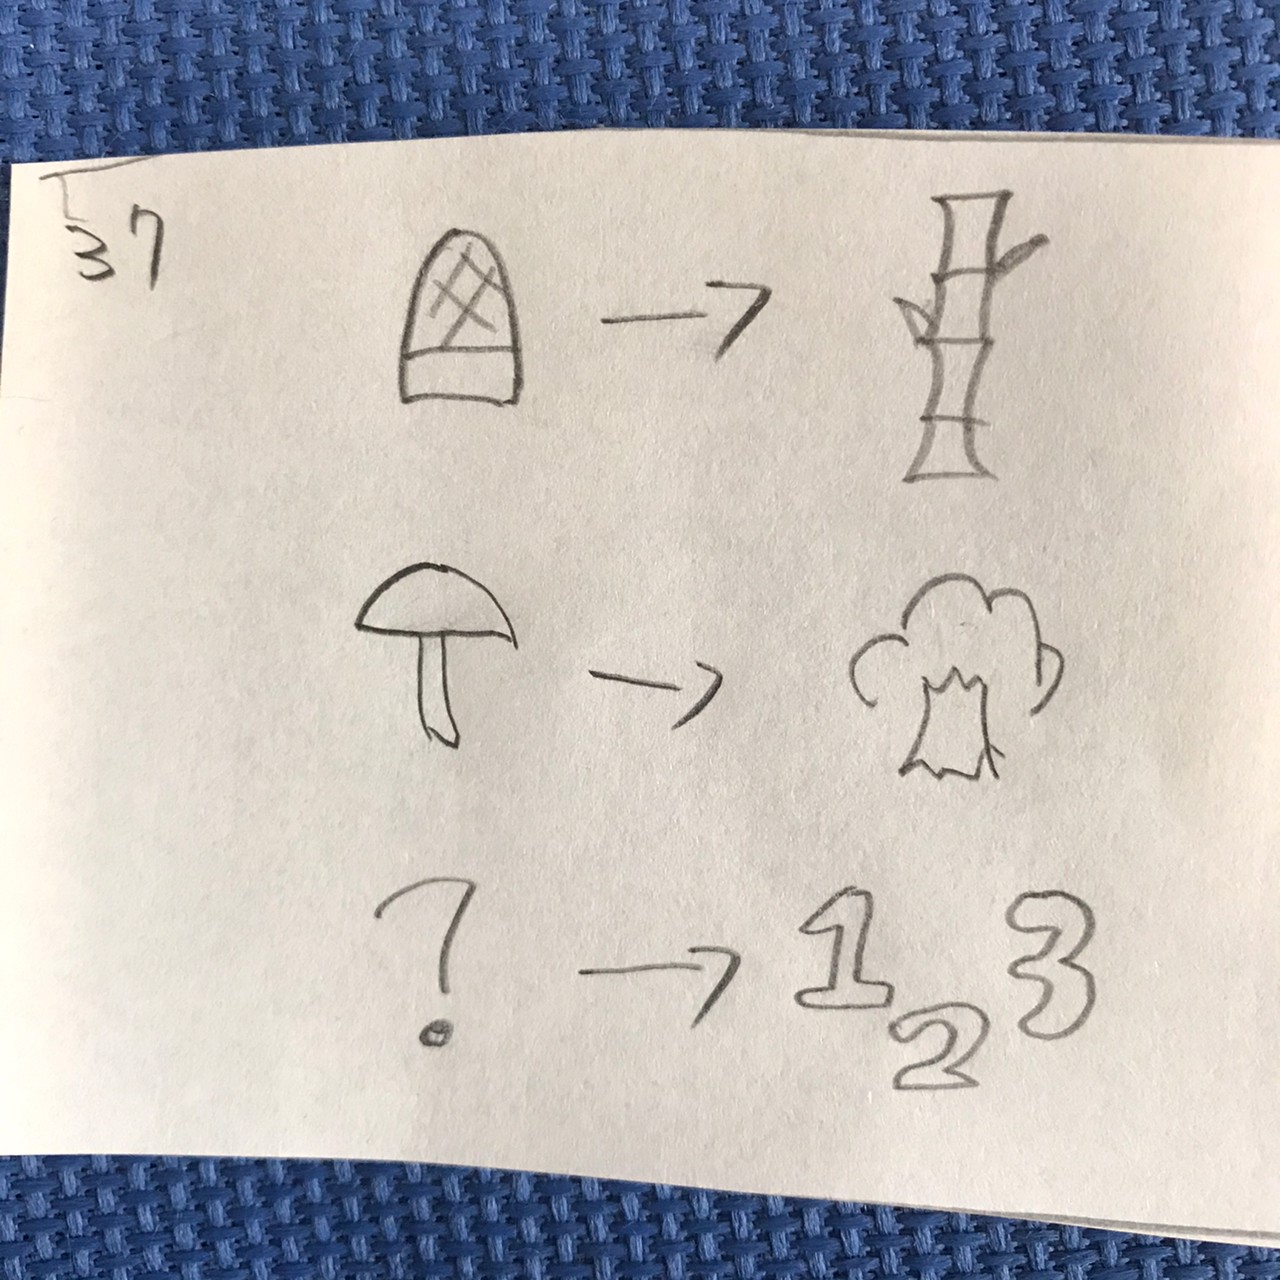 37
?
1 2 3